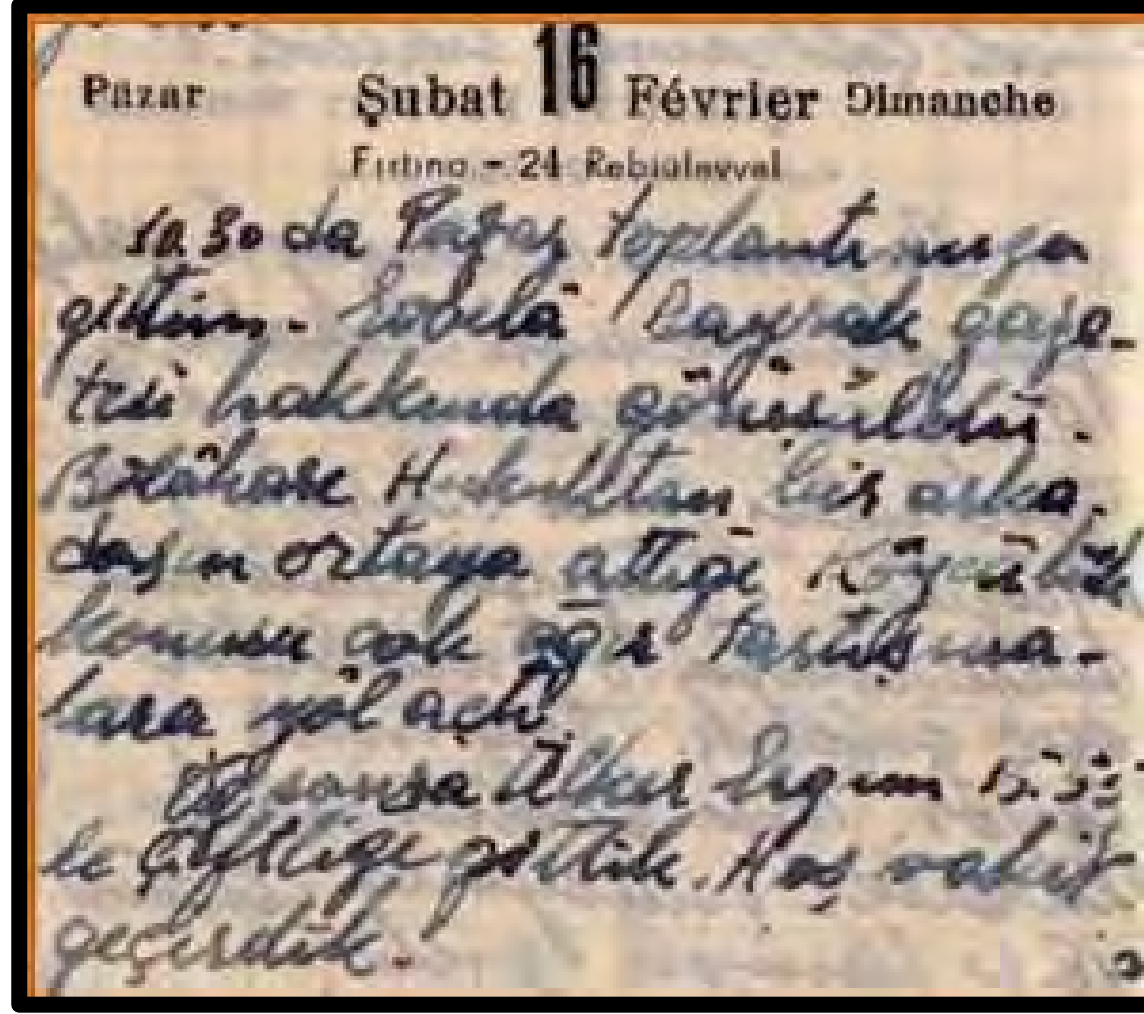 Pazar Şubat 16 Février Dimanche
Fırtına - 24 Rebiülevvel
10.30 da Pazar toplantımıza
gittim. Bayrak gaze-
tesi hakkında görüşüldü.
Bilâhare Hukuktan bir arka-
daşın ortaya attığı Köycülük
konusu çok ağır tartışma-
lara yol açtı.
sonra Ülker
le Çiftliğe gittik. Hoş vakit
geçirdik.